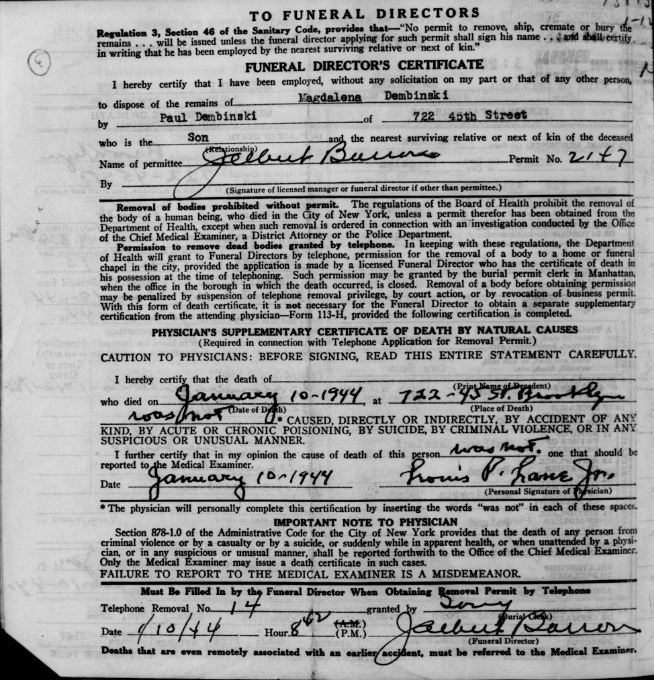 TO FUNERAL DIRECTORS
Regulation 3, Section 46 of the Sanitary Code, provides that—"No permit to remove, ship, cremate or bury the
remains . . . will be issued unless the funeral director applying for such permit shall sign his name . . . and shall certify
in writing that he has been employed by the nearest surviving relative or next of kin."
FUNERAL DIRECTOR'S CERTIFICATE
I hereby certify that I have been employed, without any solicitation on my part or that of any other person,
to dispose of the remains of Magdalena Dembinski
by Paul Dembinski of 722 45th Street
who is the Son and the nearest surviving relative or next of kin of the deceased
(Relationship)
Name of permittee Jalbert Barron Permit No. 2147
By
(Signature of licensed manager or funeral director if other than permittee.)
Removal of bodies prohibited without permit. The regulations of the Board of Health prohibit the removal of
the body of a human being, who died in the City of New York, unless a permit therefor has been obtained from the
Department of Health, except when such removal is ordered in connection with an investigation conducted by the Office
of the Chief Medical Examiner, a District Attorney or the Police Department.
Permission to remove dead bodies granted by telephone. In keeping with these regulations, the Department
of Health will grant to Funeral Directors by telephone, permission for the removal of a body to a home or funeral
chapel in the city, provided the application is made by a licensed Funeral Director who has the certificate of death in
his possession at the time of telephoning. Such permission may be granted by the burial permit clerk in Manhattan,
when the office in the borough in which the death occurred, is closed. Removal of a body before obtaining permission
may be penalized by suspension of telephone removal privilege, by court action, or by revocation of business permit.
With this form of death certificate, it is not necessary for the Funeral Director to obtain a separate supplementary
certification from the attending physician—Form 113-H, provided the following certification is completed.
PHYSICIAN'S SUPPLEMENTARY CERTIFICATE OF DEATH BY NATURAL CAUSES
(Required in connection with Telephone Application for Removal Permit.)
CAUTION TO PHYSICIANS: BEFORE SIGNING, READ THIS ENTIRE STATEMENT CAREFULLY.
I hereby certify that the death of
(Print Name of Decedent)
who died on January 10-1944, at 722-45 St. Brooklyn
(Date of Death) (Place of Death)
was not * CAUSED, DIRECTLY OR INDIRECTLY, BY ACCIDENT OF ANY
KIND, BY ACUTE OR CHRONIC POISIONING, BY SUICIDE, BY CRIMINAL VIOLENCE, OR IN ANY
SUSPICIOUS OR UNUSUAL MANNER.
I further certify that in my opinion the cause of death of this person was not * one that should be
reported to the Medical Examiner.
Date January 10-1944 Louis P. Lane Jr.
(Personal Signature of Physician)
* The physician will personally complete this certification by inserting the words "was not" in each of these spaces.
IMPORTANT NOTE TO PHYSICIAN
Section 878-1.0 of the Administrative Code for the City of New York provides that the death of any person from
criminal violence or by a casualty or by a suicide, or suddenly while in apparent health, or when unattended by a physi-
cian, or in any suspicious or unusual manner, shall be reported forthwith to the Office of the Chief Medical Examiner.
Only the Medical Examiner may issue a death certificate in such cases.
FAILURE TO REPORT TO THE MEDICAL EXAMINER IS A MISDEMEANOR.
Must Be Filled In by the Funeral Director When Obtaining Removal Permit by Telephone
Telephone Removal No. 14 granted by
(Burial Clerk)
Date 1/10/44 Hour 8 (A.M.)
(P.M.) Jalbert Barron
(Funeral Director)
Deaths that are even remotely associated with an earlier accident, must be referred to the Medical Examiner.